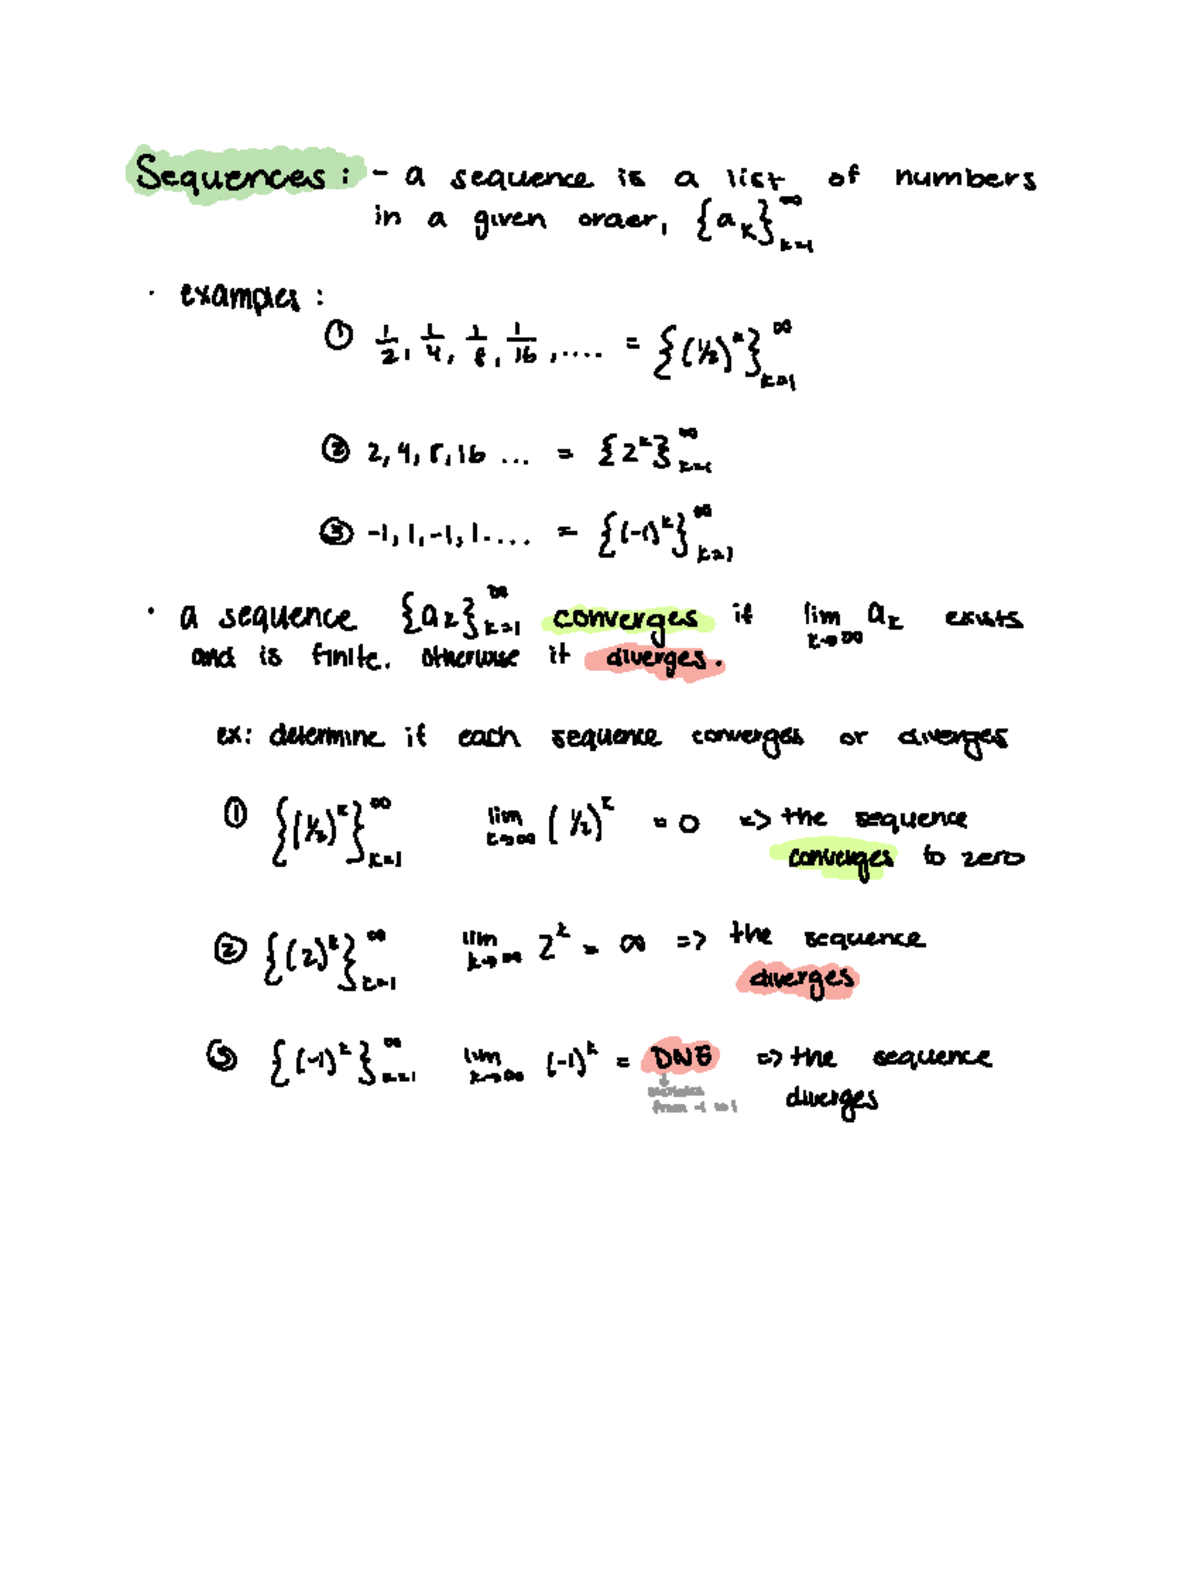 Sequences: - a sequence is a list of numbers
in a given order, {a_k}_{k=1}^∞
· examples:
① 1/2, 1/4, 1/8, 1/16, .... = {(1/2)^k}_{k=1}^∞
② 2, 4, 8, 16 ... = {2^k}_{k=1}^∞
③ -1, 1, -1, 1.... = {(-1)^k}_{k=1}^∞
· a sequence {a_k}_{k=1}^∞ converges if lim_{k→∞} a_k exists
and is finite. otherwise it diverges.
ex: determine if each sequence converges or diverges
① {(1/2)^k}_{k=1}^∞ lim_{k→∞} (1/2)^k = 0 => the sequence
converges to zero
② {(2)^k}_{k=1}^∞ lim_{k→∞} 2^k = ∞ => the sequence
diverges
③ {(-1)^k}_{k=1}^∞ lim_{k→∞} (-1)^k = DNE => the sequence
↓
from -1 to 1
diverges